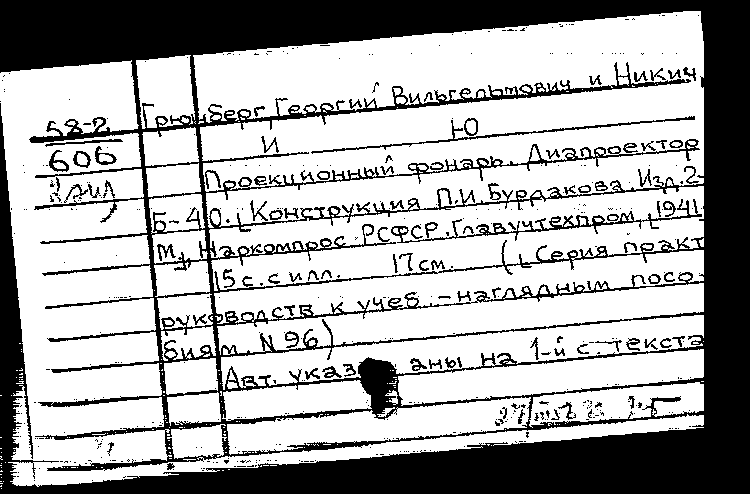 58-2
606
Грюнберг, Георгий Вильгельмович и Никич,
И Ю
Проекционный фонарь. Диапроектор
Б-40. [Конструкция П.И. Бурдакова. Изд. 2-
М], Наркомпрос РСФСР. Главучтехпром, [1941
15 с. с илл. 17 см. ([Серия практ
руководств к учеб.-наглядным посо-
биям. N 96).
Авт. указаны на 1-й с. текста